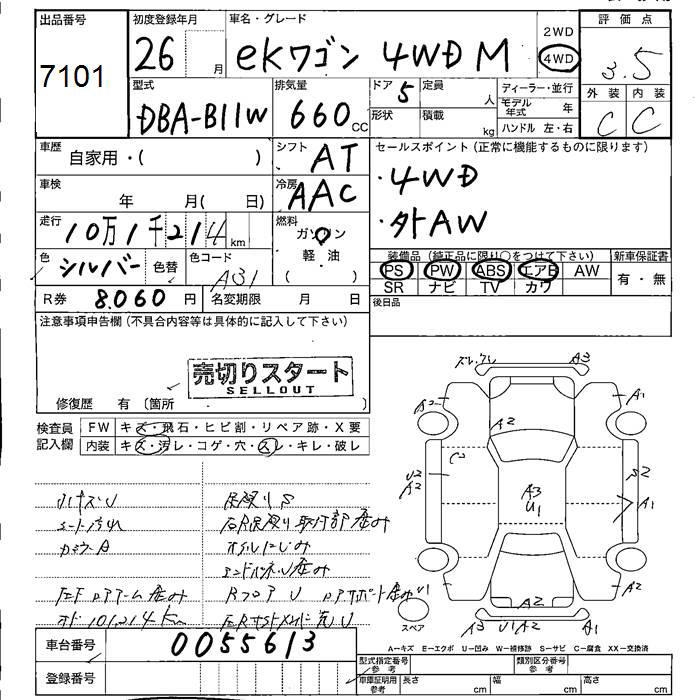 出品番号
7101
初度登録年月
26 月
車名・グレード
eKワゴン 4WD M
2WD
4WD
評価点
3.5
外装 内装
C C
型式
DBA-B11W
排気量
660 CC
ドア 5
形状
定員 人
積載 kg
ディーラー・並行
モデル年式 年
ハンドル 左・右
車歴
自家用・( )
シフト
AT
車検
年 月( 日)
冷房
AAC
走行
10万1千214 km
燃料
ガソリン
軽・油
( )
色
シルバー
色替
色コード
A31
R券 8.060 円
名変期限 月 日
セールスポイント(正常に機能するものに限ります)
・4WD
・外AW
装備品(純正品に限り○をつけて下さい)
PS PW ABS エアB AW
SR ナビ TV カワ
新車保証書
有・無
後日品
注意事項申告欄(不具合内容等は具体的に記入して下さい)
売切りスタート
SELLOUT
修復歴 有(箇所 )
検査員記入欄
FW キズ・飛石・ヒビ割・リペア跡・X要
内装 キズ・汚レ・コゲ・穴・スレ・キレ・破レ
シート汚れ
オイルにじみ
オド 101,214km
車台番号
0055613
登録番号
A3
A2
A1
A2
A3
U1
A2
A1
A2
A3
U1A2
A1
スペア
A-キズ E-エクボ U-凹み W-補修跡 S-サビ C-腐食 XX-交換済
型式指定番号 参考
類別区分番号 参考
車庫証明用 参考
長さ cm
幅 cm
高さ cm